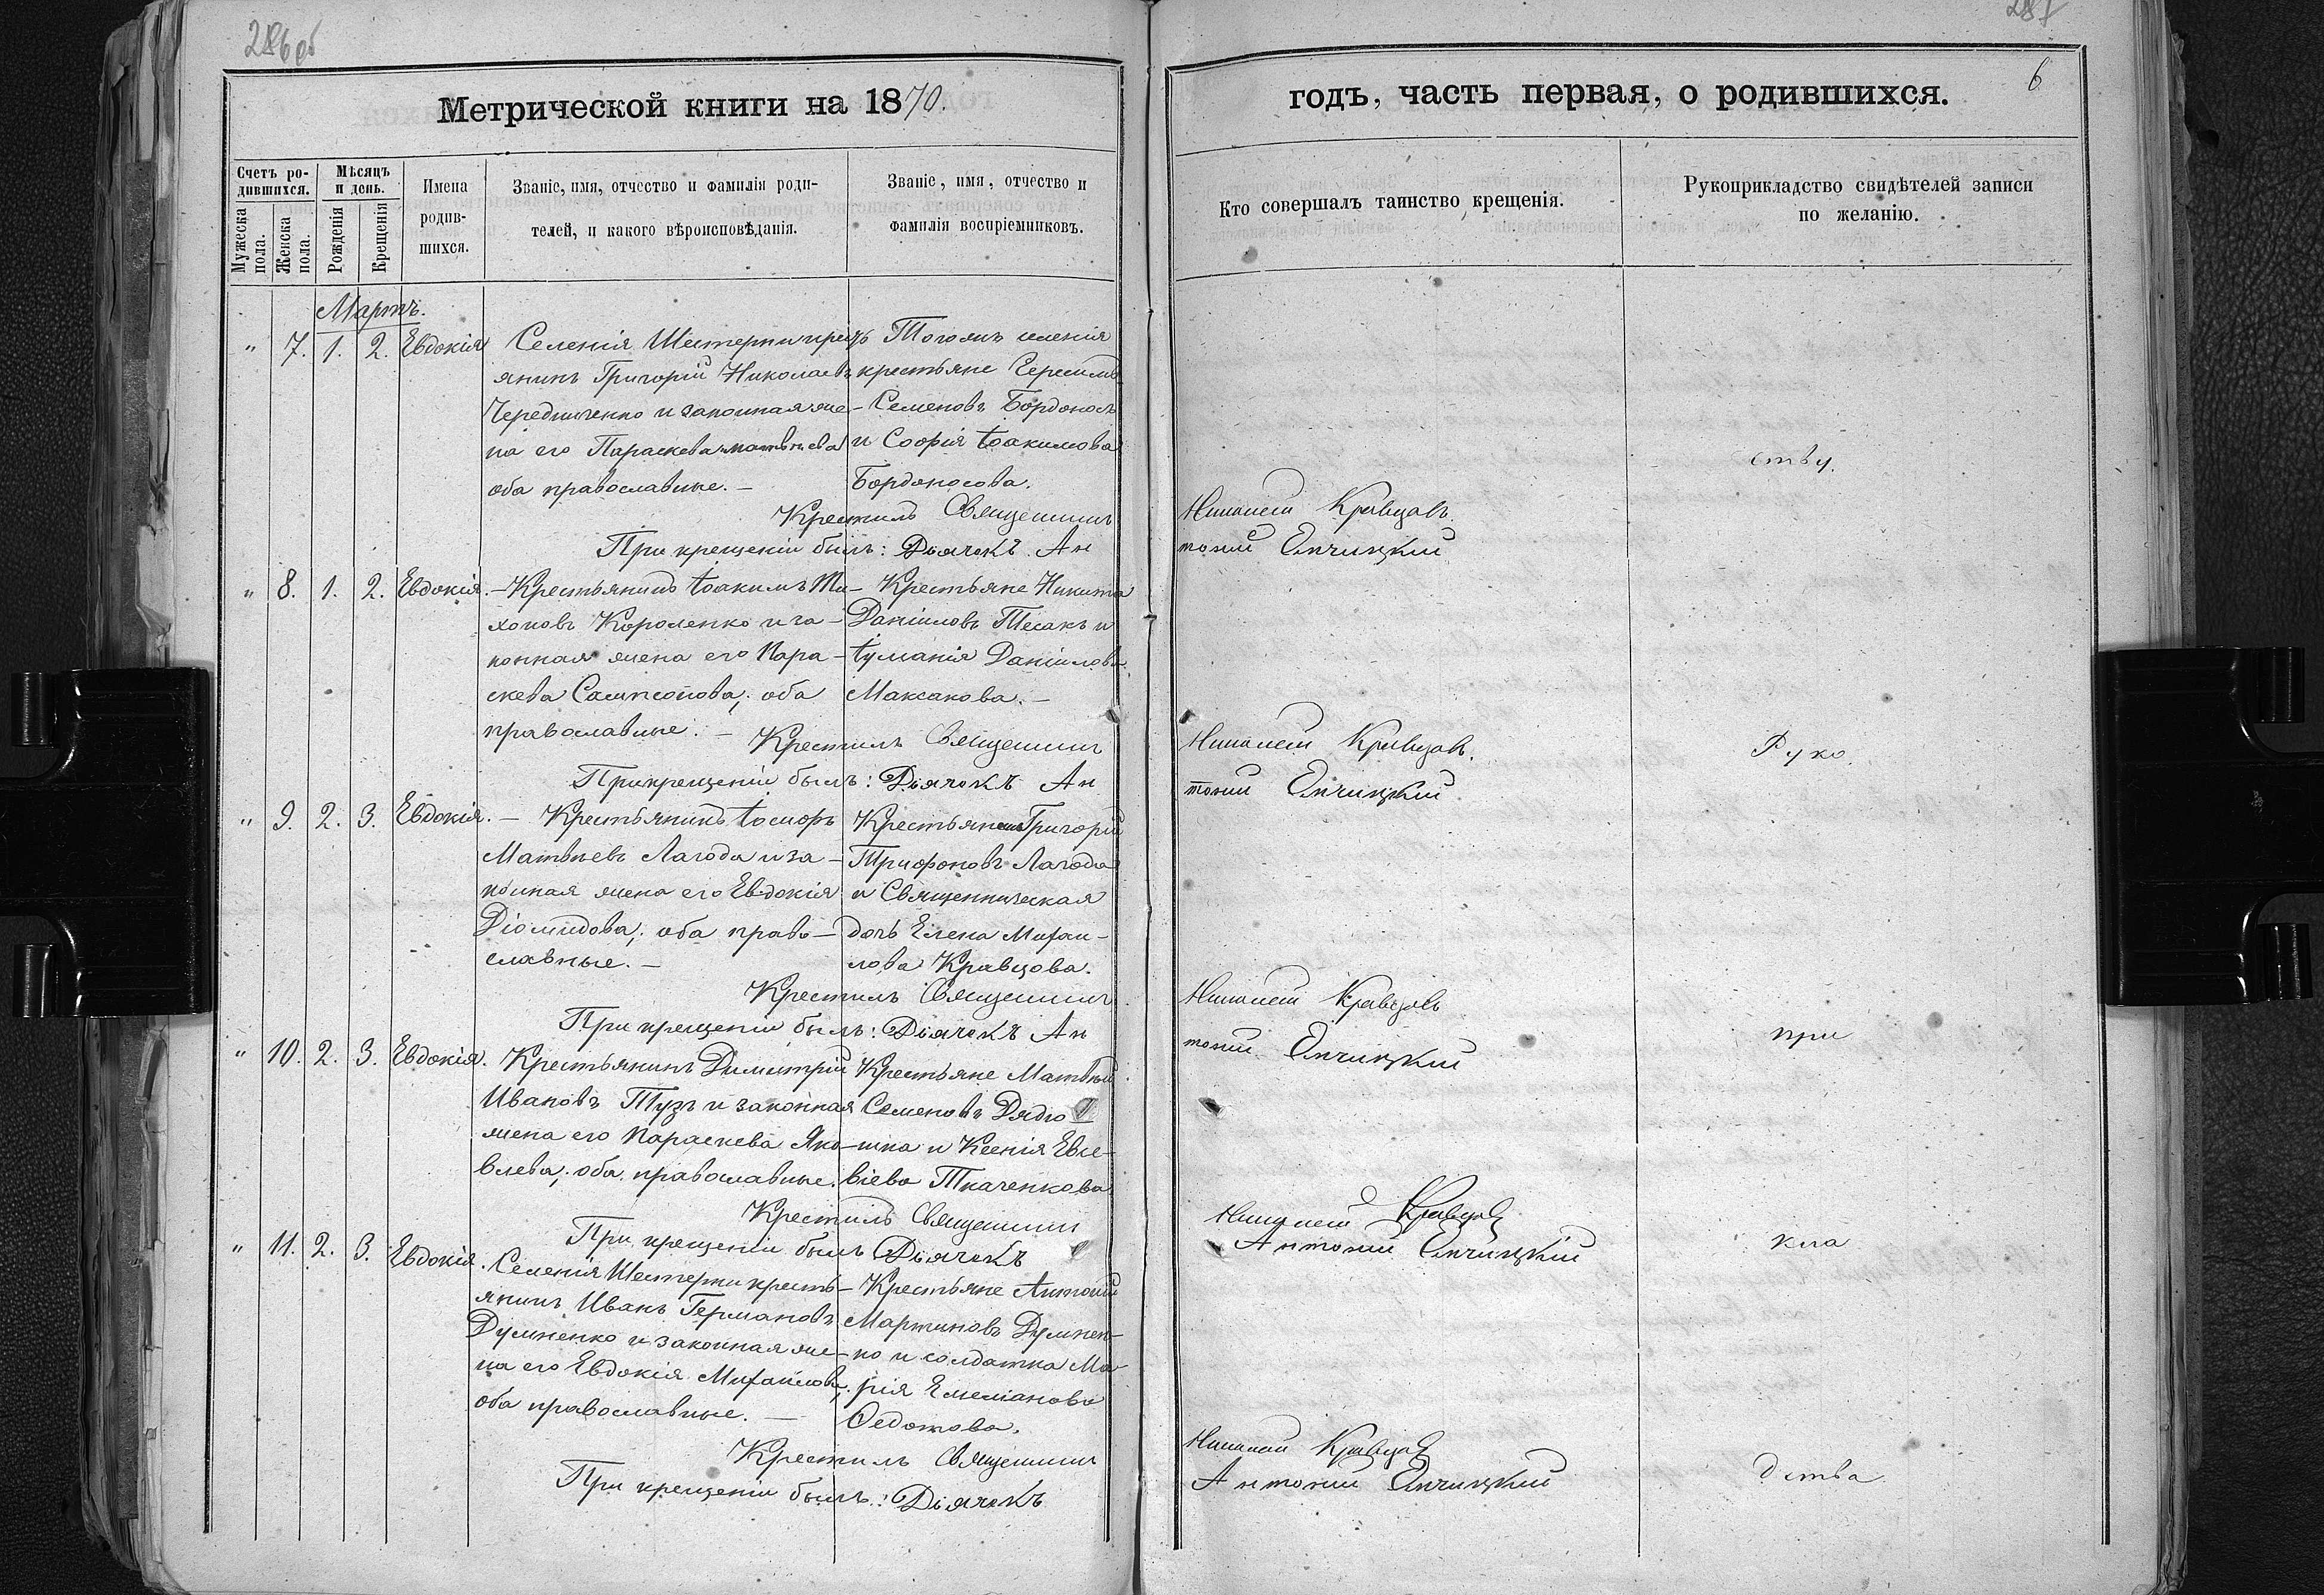 286об
Метрической книги на 1870.
Счетъ ро-
дившихся.
Мужеска
пола.
Женска
пола.
Мѣсяцъ
и день.
Рожденія
Крещенія
Имена
родив-
шихся.
Званіе, имя, отчество и фамилія роди-
телей, и какого вѣроисповѣданія.
Званіе, имя, отчество и
фамилія воспріемниковъ.
Мартъ.
" 7. 1. 2. Евдокія
Селенія Шестерни крестъ
янинъ Григорій Николаевъ
Чередниченко и законная же-
на его Параскева Матвѣева
оба православные. —
Тогожъ селенія
крестьяне
Семеновъ Бордонос
и Софія Іоакимова
Бордоносова.
Крестилъ Священникъ
При крещеніи былъ: Дьячокъ Ан
" 8. 1. 2. Евдокія.
— Крестьянинъ Іоакимъ Ти-
хоновъ Короленко и за-
конная жена его Пара-
скева Сампсонова; оба
православные. —
Крестьяне Никита
Даніиловъ Тесакъ и
Іуліанія Даніилова
Максакова. —
Крестилъ Священникъ
При крещеніи былъ: Дьячокъ Ан
" 9. 2. 3. Евдокія.
— Крестьянинъ Іосифъ
Матвѣевъ Лагода и за-
конная жена его Евдокія
Діомидова; оба право-
славные. —
Григорій
Трифоновъ Лагода
и Священническая
дочь Елена Михаи-
лова Кравцова.
Крестилъ Священникъ
При крещеніи былъ: Дьячокъ Ан
" 10. 2. 3. Евдокія.
Крестьянинъ Димитрій
Ивановъ Тузъ и законная
жена его Параскева Яко-
влева; оба православные.
Крестьяне Матвѣй
Семеновъ Дядю
шка и Ксенія Евсе-
віева Ткаченкова
Крестилъ Священникъ
При крещеніи былъ Дьячокъ
" 11. 2. 3. Евдокія.
Селенія Шестерни кресть-
янинъ Иванъ Германовъ
Думненко и законная же-
на его Евдокія Михаилова;
оба православные. —
Крестьяне Антоній
Мартиновъ Думнен-
ко и солдатка Ма-
рія Емеліанова
Федотова.
Крестилъ Священникъ
При крещеніи былъ: Дьячокъ
287
6
годъ, часть первая, о родившихся.
Кто совершалъ таинство крещенія.
Рукоприкладство свидѣтелей записи
по желанію.
ству.
Кравцовъ
тоній
Руко
Кравцовъ.
тоній
при
Кравцовъ
тоній
кла
Кравцовъ
Антоній
дства
Кравцовъ
Антоній